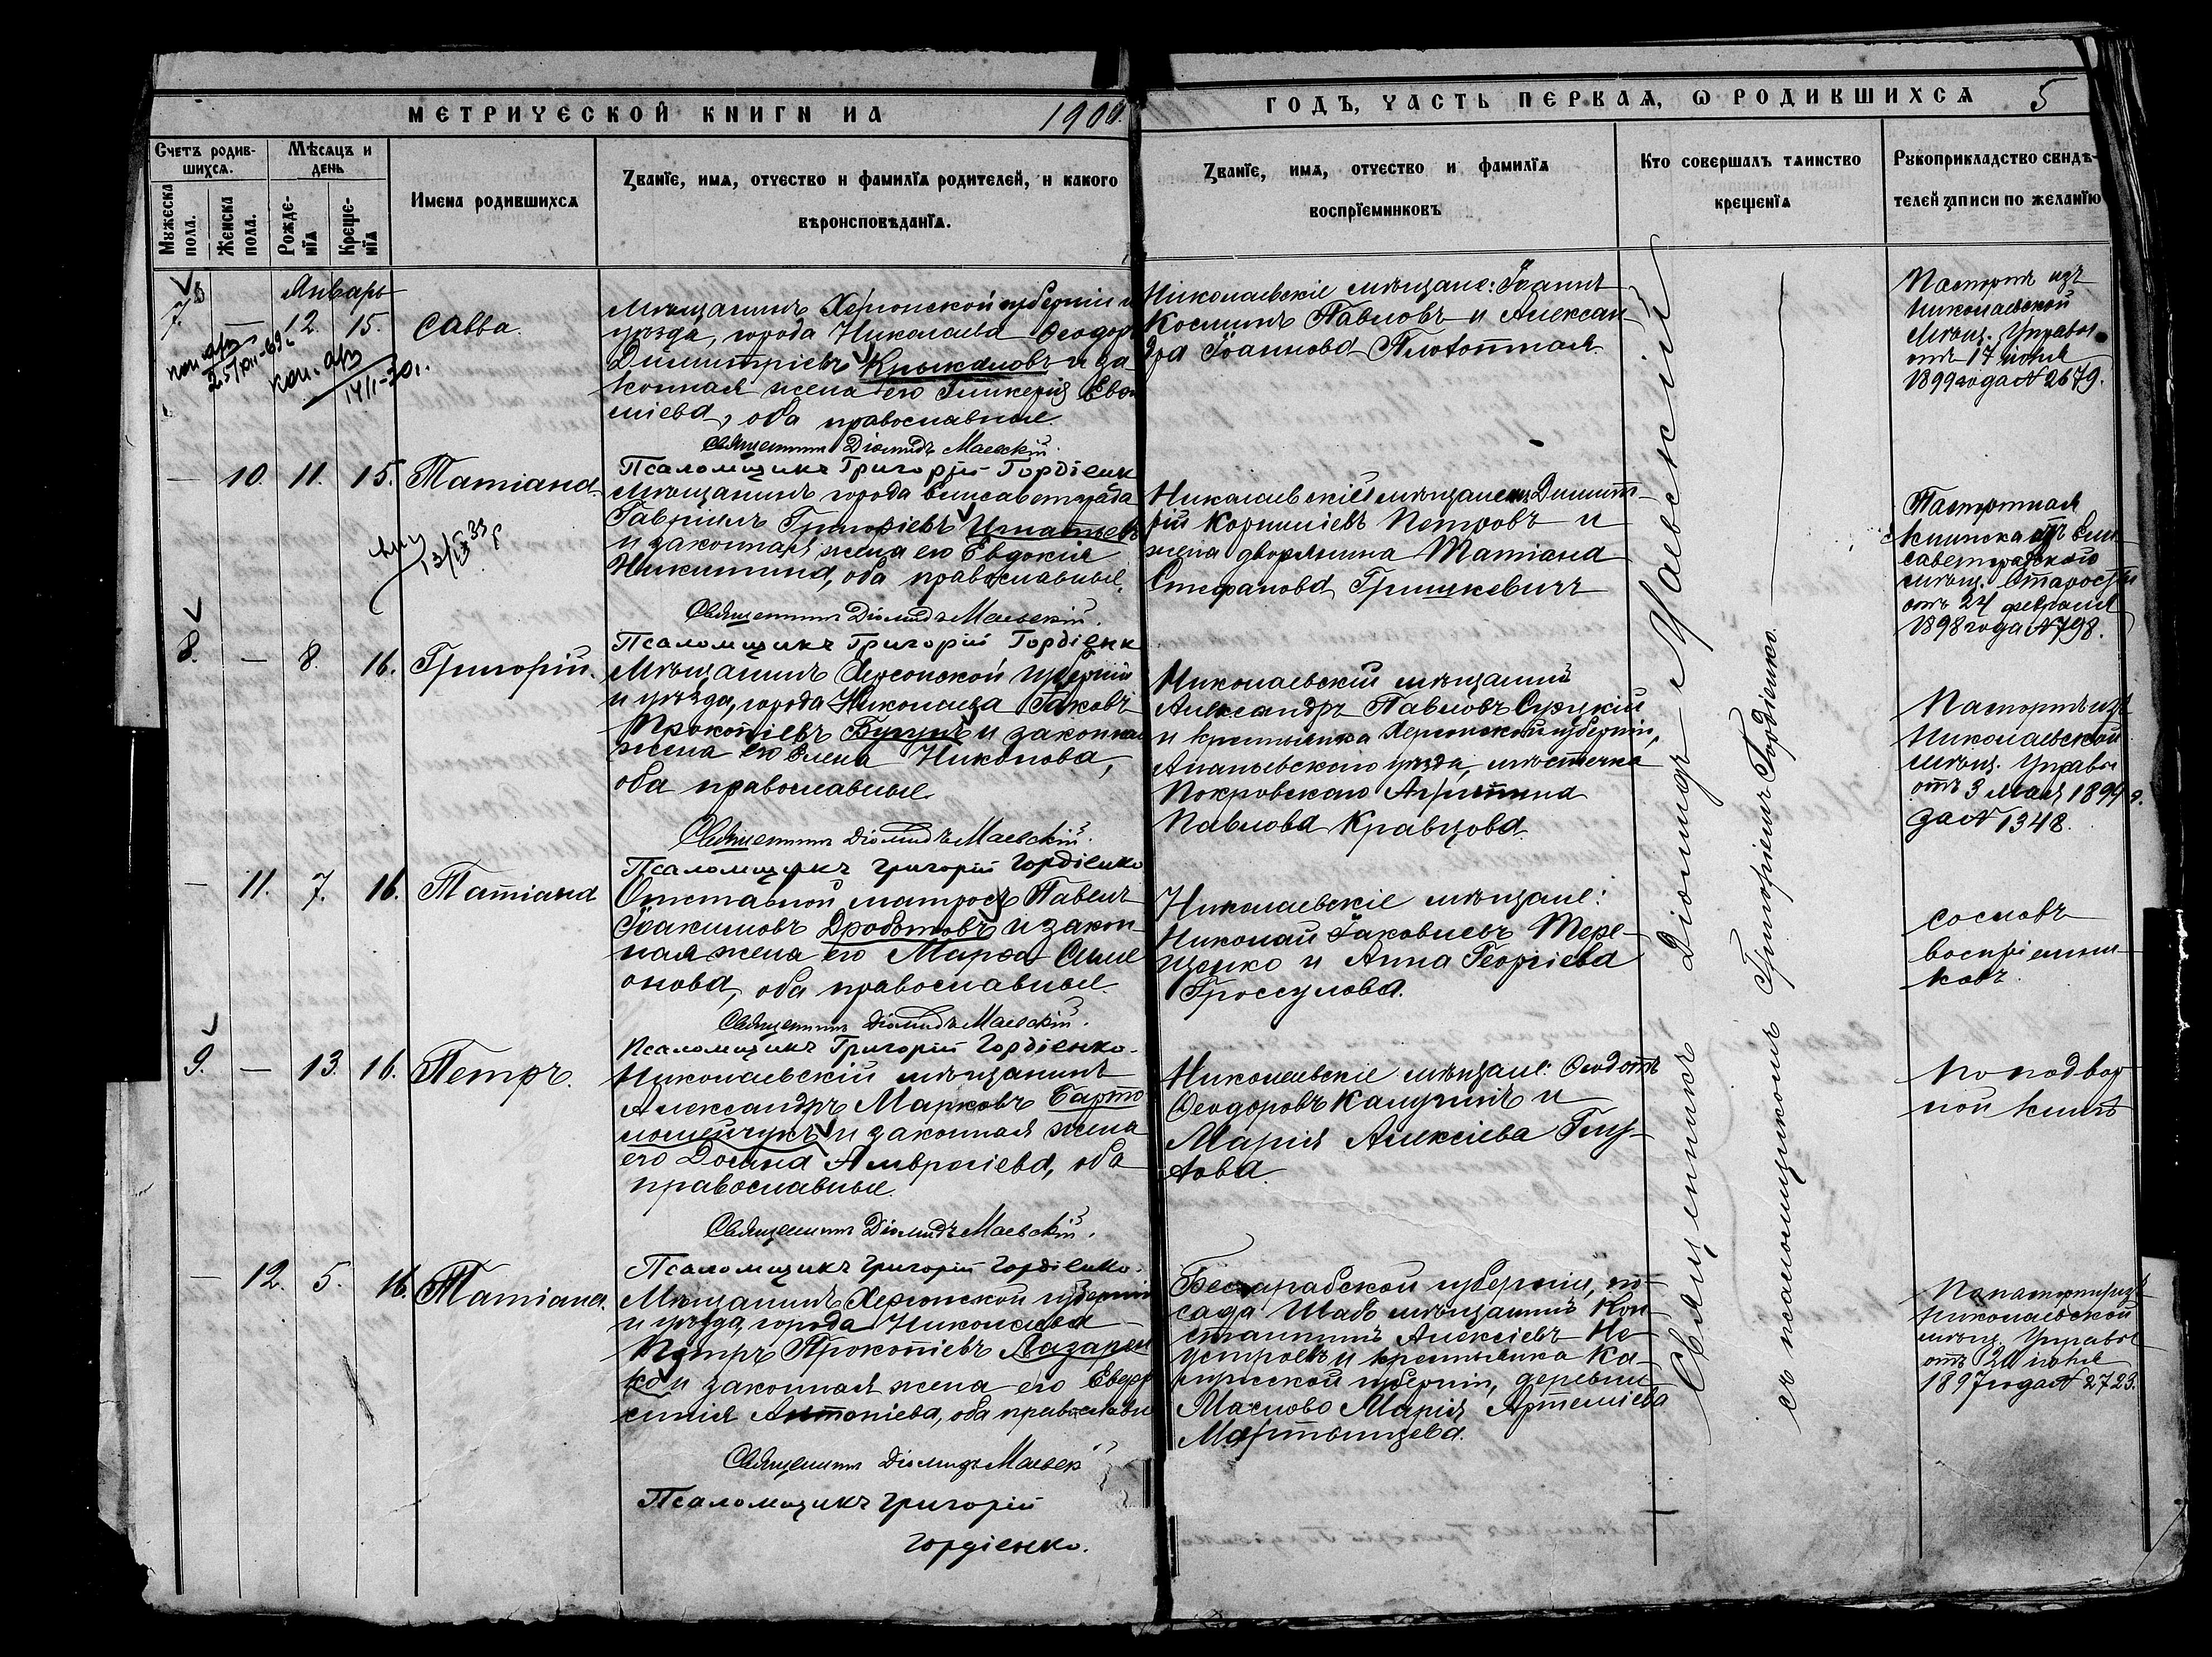 МЕТРИЧЕСКОЙ КНИГИ НА 1900
ГОДЪ, ЧАСТЬ ПЕРВАЯ, О РОДИВШИХСЯ 5
Счетъ родив-
шихся.
Мѣсяцъ и
день
Мужеска
пола.
Женска
пола.
Рожде-
нїя
Креще-
нїя
Имена родившихся
Званїе, имя, отчество и фамилїя родителей, и какого
вѣроисповѣданїя.
Званїе, имя, отчество и фамилїя
воспрїемниковъ
Кто совершалъ таинство
крещенїя
Рукоприкладство свидѣ-
телей записи по желанїю
Январь
7. — 12. 15. Савва.
Мѣщанинъ Херсонской губерніи и
уѣзда, города Николаева Ѳеодоръ
Димитріевъ и за
конная жена его Гликерія
оба православные.
Священникъ Діомидъ Маевскій.
Псаломщикъ Григорій Гордіенк
Николаевскіе мѣщане: Іоаннъ
Косминъ Павловъ и Алексан
дра Іоаннова
Паспортъ изъ
Николаевской
Мѣщ. Управы
отъ 17 іюня
1899 года № 2679.
— 10. 11. 15. Татіана
Мѣщанинъ города Елисаветграда
Гавріилъ Григоріевъ Игнатьевъ
и законная жена его Евдокія
Никитина, оба православные.
Священникъ Діомидъ Маевскій.
Псаломщикъ Григорій Гордіенк
Димит-
рій Корниліевъ Петровъ и
жена дворянина Татіана
Стефанова Гришкевичъ
Паспортная
книжка отъ Ели
саветградскаго
мѣщ. Старосты
отъ 24 февраля
1898 года № 798.
8. — 8. 16. Григорій.
Мѣщанинъ Херсонской губерніи
и уѣзда, города Николаева Іаковъ
Прокопіевъ и законная
жена его Елена Никонова,
оба православные.
Священникъ Діомидъ Маевскій.
Псаломщикъ Григорій Гордіенко
Николаевскій мѣщанинъ
Александръ Павловъ
и крестьянка Херсонской губерніи,
Ананьевскаго уѣзда, мѣстечка
Покровскаго
Павлова Кравцова.
Паспортъ изъ
Николаевской
мѣщ. Управы
отъ 3 мая 1899 г.
за № 1348.
— 11. 7. 16. Татіана
Отставной матросъ Павелъ
Іоакимовъ Дроботовъ и закон
ная жена его Марѳа Симе
онова, оба православные.
Священникъ Діомидъ Маевскій.
Псаломщикъ Григорій Гордіенко.
Николаевскіе мѣщане:
Николай Іаковлевъ Тере-
щенко и Анна Георгіева
Гроссулова.
со словъ
воспріемни-
ковъ.
9. — 13. 16. Петръ.
Николаевскій мѣщанинъ
Александръ Марковъ Барто
ломейчукъ и законная жена
его Домна Амвросіева, оба
православные.
Священникъ Діомидъ Маевскій.
Псаломщикъ Григорій Гордіенко.
Николаевскіе мѣщане: Ѳеодотъ
Ѳеодоровъ Калугинъ и
Марія Алексіева
По подвор
ной книгѣ
— 12. 5. 16. Татіана.
Мѣщанинъ Херсонской губерніи
и уѣзда, города Николаева
Петръ Прокопіевъ Лазарен
ко и законная жена его Евфро
синія Антоніева, оба православн
Священникъ Діомидъ Маевск
Псаломщикъ Григорій
Гордіенко.
Бессарабской губерніи, по-
сада Шабо мѣщанинъ Кон-
стантинъ Алексіевъ Не-
устроевъ и крестьянка Ка-
лужской губерніи, деревни
Маслово Марія Артеміева
Мартынцева.
Николаевской
мѣщ. Управы
отъ 20 іюня
1897 года № 2723.
Священникъ Діомидъ Маевскій
съ псаломщикомъ Григоріемъ Гордіенко.